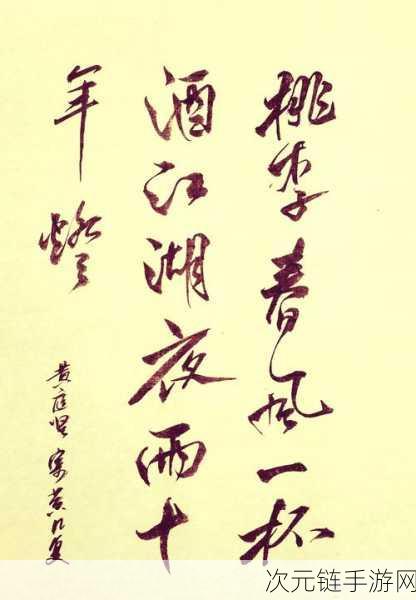 桃李春风一杯
酒江湖夜雨十
年燈
黄庭坚 寄黄几复
次元链手游网